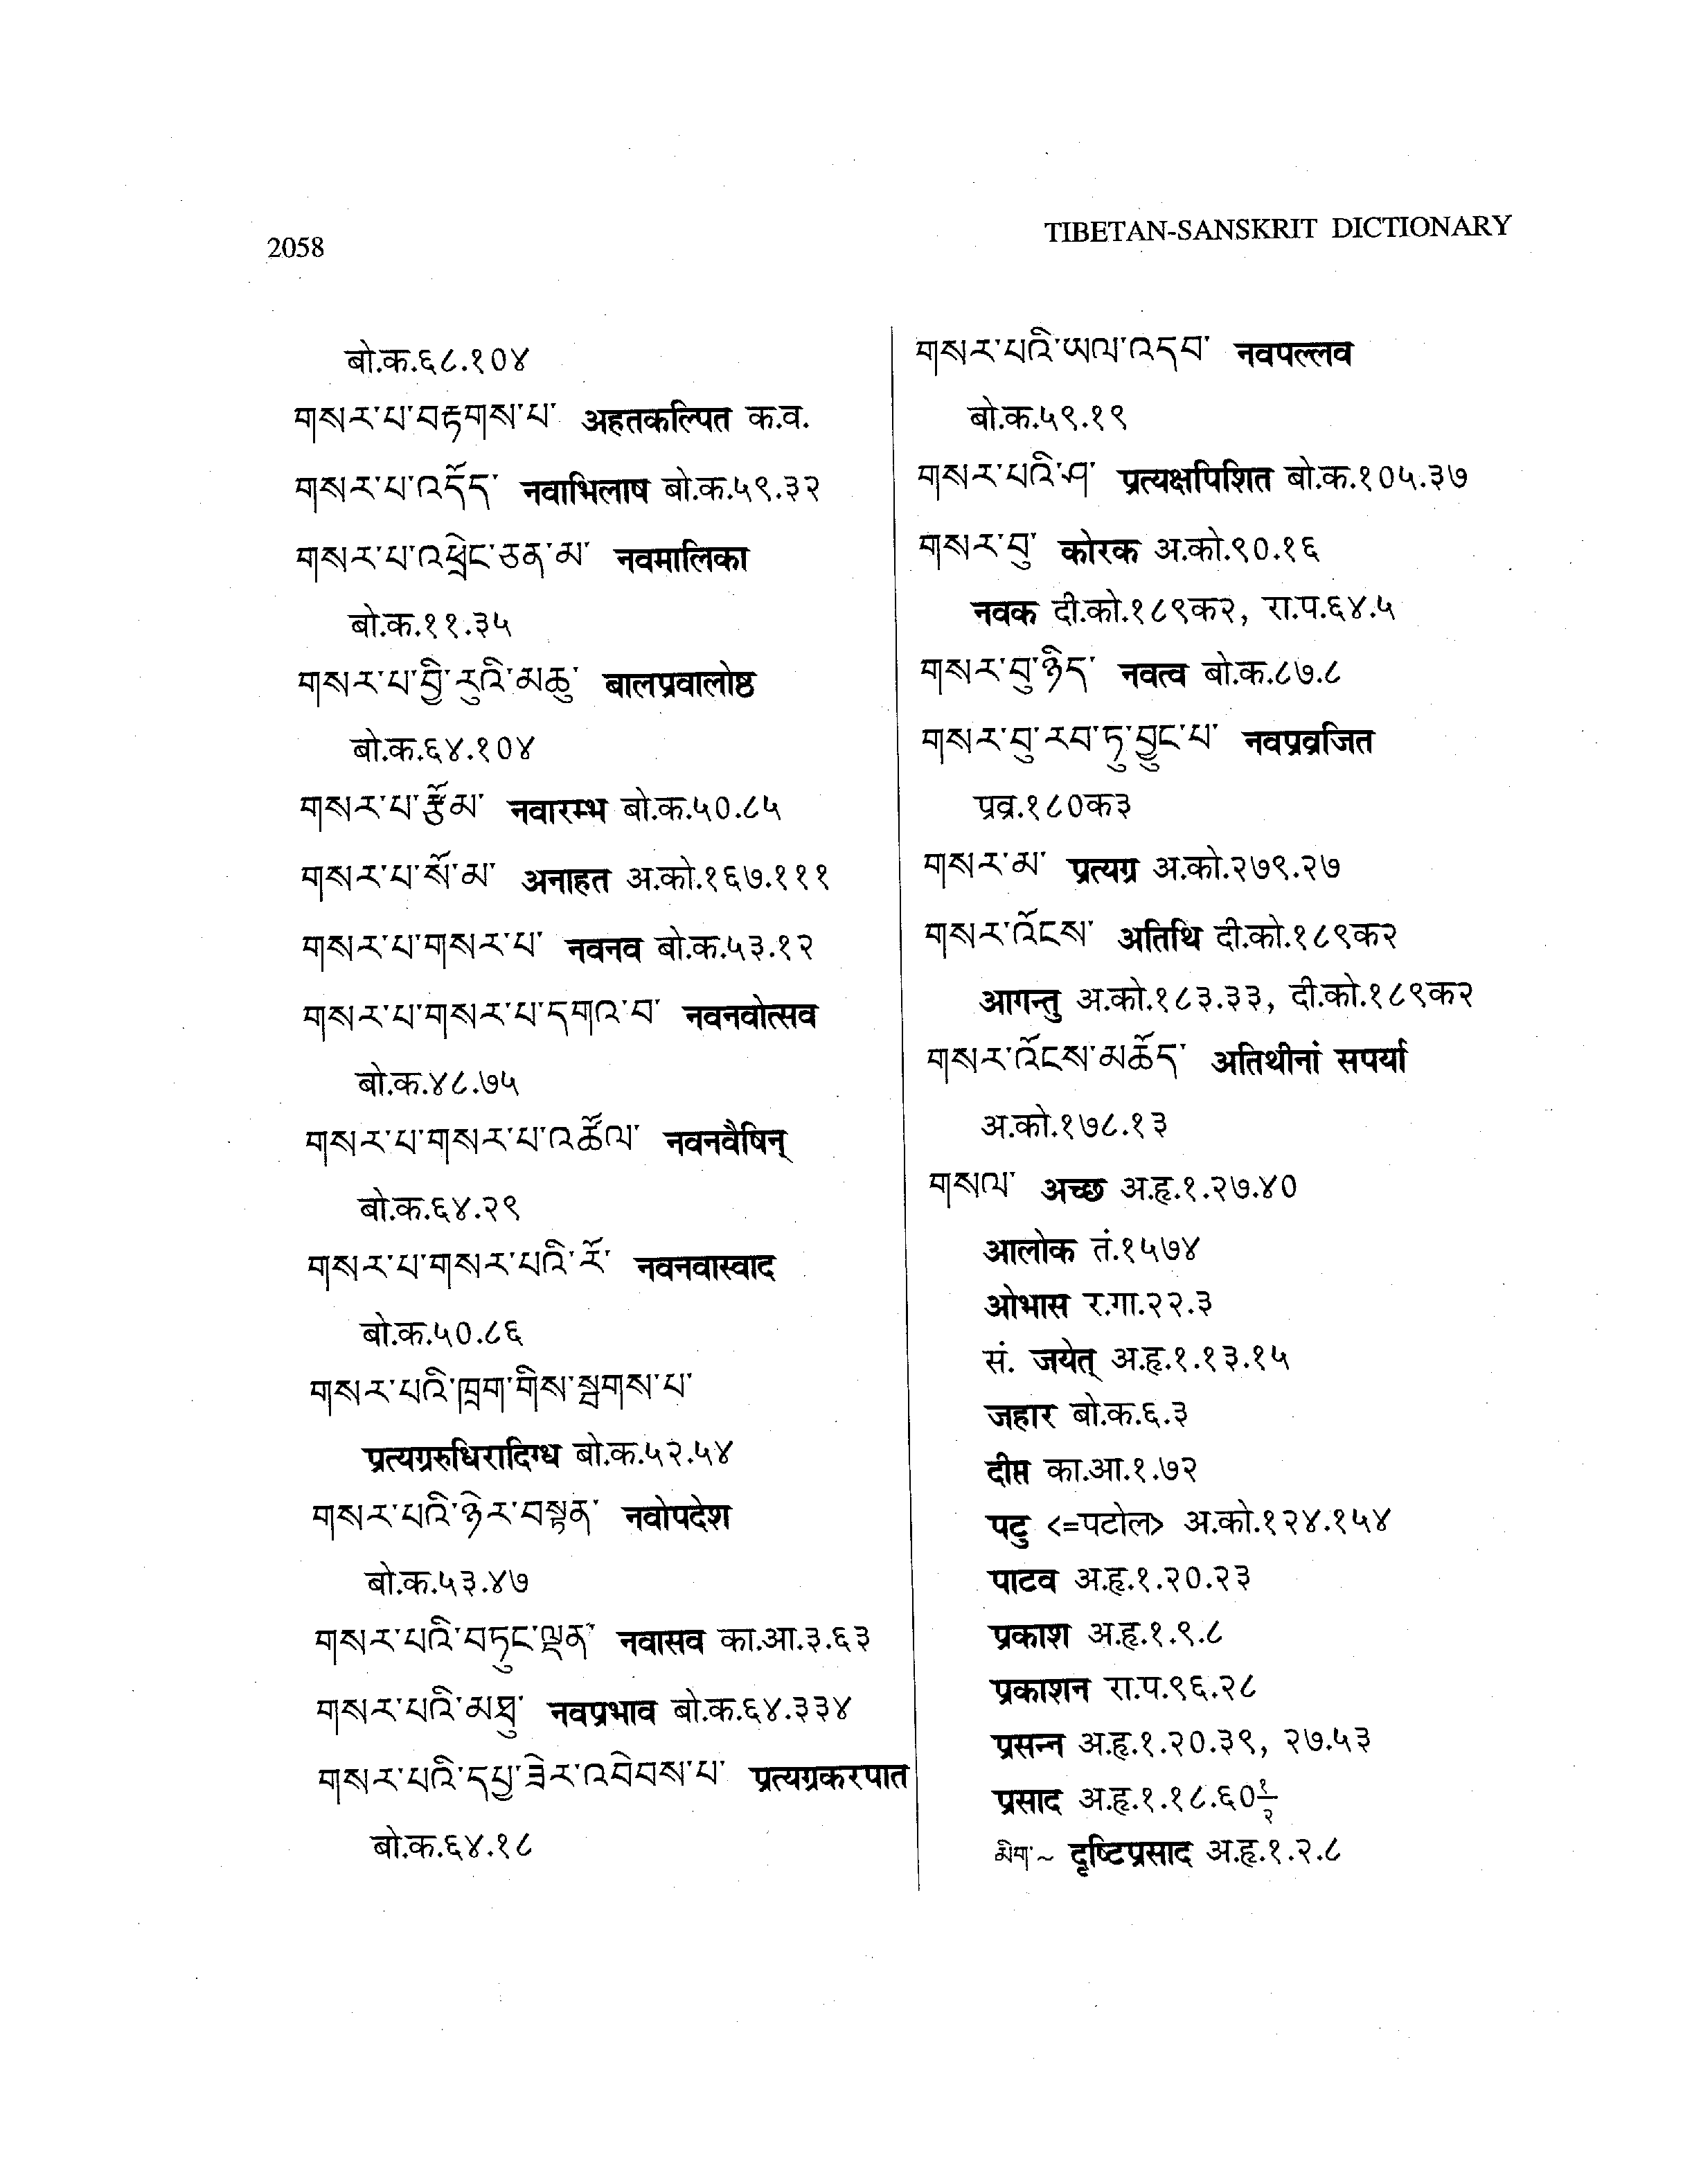 2058
TIBETAN-SANSKRIT DICTIONARY
बो.क.६८.१०४
གསར་པ་བརྟགས་པ་ अहतकल्पित क.व.
གསར་པ་འདོད་ नवाभिलाष बो.क.५९.३२
གསར་པ་འཕྲེང་ཅན་མ་ नवमालिका
बो.क.११.३५
གསར་པ་བྱི་རུའི་མཆུ་ बालप्रवालोष्ठ
बो.क.६४.१०४
གསར་པ་རྩོམ་ नवारम्भ बो.क.५०.८५
གསར་པ་སོ་མ་ अनाहत अ.को.१६७.१११
གསར་པ་གསར་པ་ नवनव बो.क.५३.१२
གསར་པ་གསར་པ་དགའ་བ་ नवनवोत्सव
बो.क.४८.७५
གསར་པ་གསར་པ་འཚོལ་ नवनवैषिन्
बो.क.६४.२९
གསར་པ་གསར་པའི་རོ་ नवनवास्वाद
बो.क.५०.८६
གསར་པའི་ཁྲག་གིས་སྦགས་པ་
प्रत्यग्ररुधिरादिग्ध बो.क.५२.५४
གསར་པའི་ཉེར་བསྟན་ नवोपदेश
बो.क.५३.४७
གསར་པའི་བཏུང་ལྡན་ नवासव का.आ.३.६३
གསར་པའི་མཐུ་ नवप्रभाव बो.क.६४.३३४
གསར་པའི་དཔྱ་ཟེར་འབེབས་པ་ प्रत्यग्रकरपात
बो.क.६४.१८
གསར་པའི་ཡལ་འདབ་ नवपल्लव
बो.क.५९.१९
གསར་པའི་ཤ་ प्रत्यक्षपिशित बो.क.१०५.३७
གསར་བུ་ कोरक अ.को.९०.१६
नवक दी.को.१८९क२, रा.प.६४.५
གསར་བུ་ཉིད་ नवत्व बो.क.८७.८
གསར་བུ་རབ་ཏུ་བྱུང་པ་ नवप्रव्रजित
प्रव्र.१८०क३
གསར་མ་ प्रत्यग्र अ.को.२७९.२७
གསར་འོངས་ अतिथि दी.को.१८९क२
आगन्तु अ.को.१८३.३३, दी.को.१८९क२
གསར་འོངས་མཆོད་ अतिथीनां सपर्या
अ.को.१७८.१३
གསལ་ अच्छ अ.हृ.१.२७.४०
आलोक तं.१५७४
ओभास र.गा.२२.३
सं. जयेत् अ.हृ.१.१३.१५
जहार बो.क.६.३
दीप्त का.आ.१.७२
पटु <=पटोल> अ.को.१२४.१५४
पाटव अ.हृ.१.२०.२३
प्रकाश अ.हृ.१.९.८
प्रकाशन रा.प.९६.२८
प्रसन्न अ.हृ.१.२०.३९, २७.५३
प्रसाद अ.हृ.१.१८.६०१/२
མིག་~ दृष्टिप्रसाद अ.हृ.१.२.८